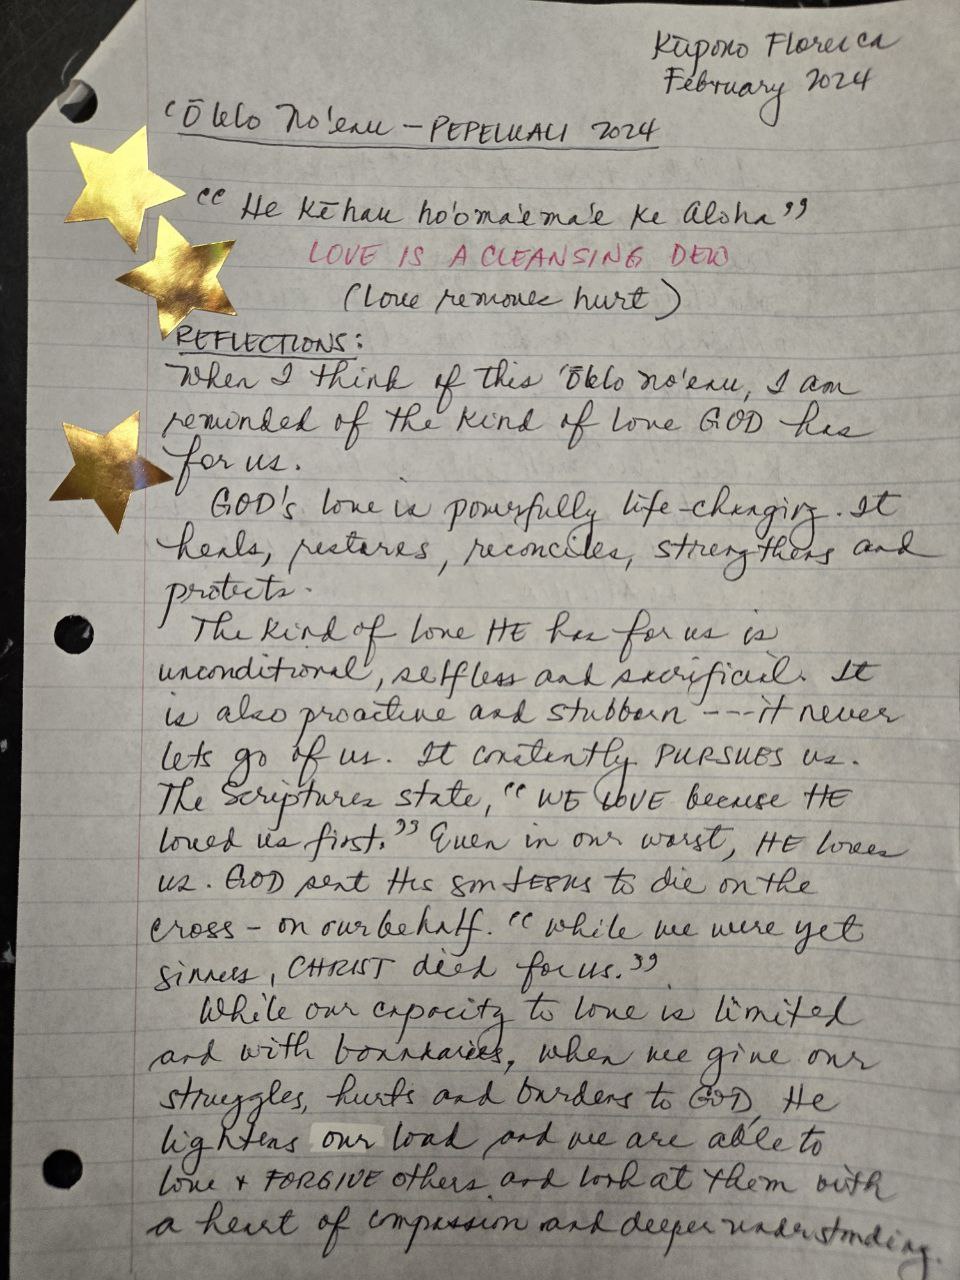 Kūpono Floresca
February 2024
'Ōlelo No'eau - PEPELUALI 2024
"He kēhau ho'oma'ema'e ke Aloha"
LOVE IS A CLEANSING DEW
(love removes hurt)
REFLECTIONS:
When I think of this 'Ōlelo No'eau, I am
reminded of the kind of love GOD has
for us.
GOD's love is powerfully life-changing. It
heals, restores, reconciles, strengthens and
protects.
The kind of love HE has for us is
unconditional, selfless and sacrificial. It
is also proactive and stubborn ---it never
lets go of us. It constantly PURSUES us.
The Scriptures state, "WE LOVE because HE
loved us first." Even in our worst, HE loves
us. GOD sent His son JESUS to die on the
cross - on our behalf. "while we were yet
sinners, CHRIST died for us."
While our capacity to love is limited
and with boundaries, when we give our
struggles, hurts and burdens to GOD, He
lightens our load and we are able to
love + FORGIVE others and look at them with
a heart of compassion and deeper understanding.